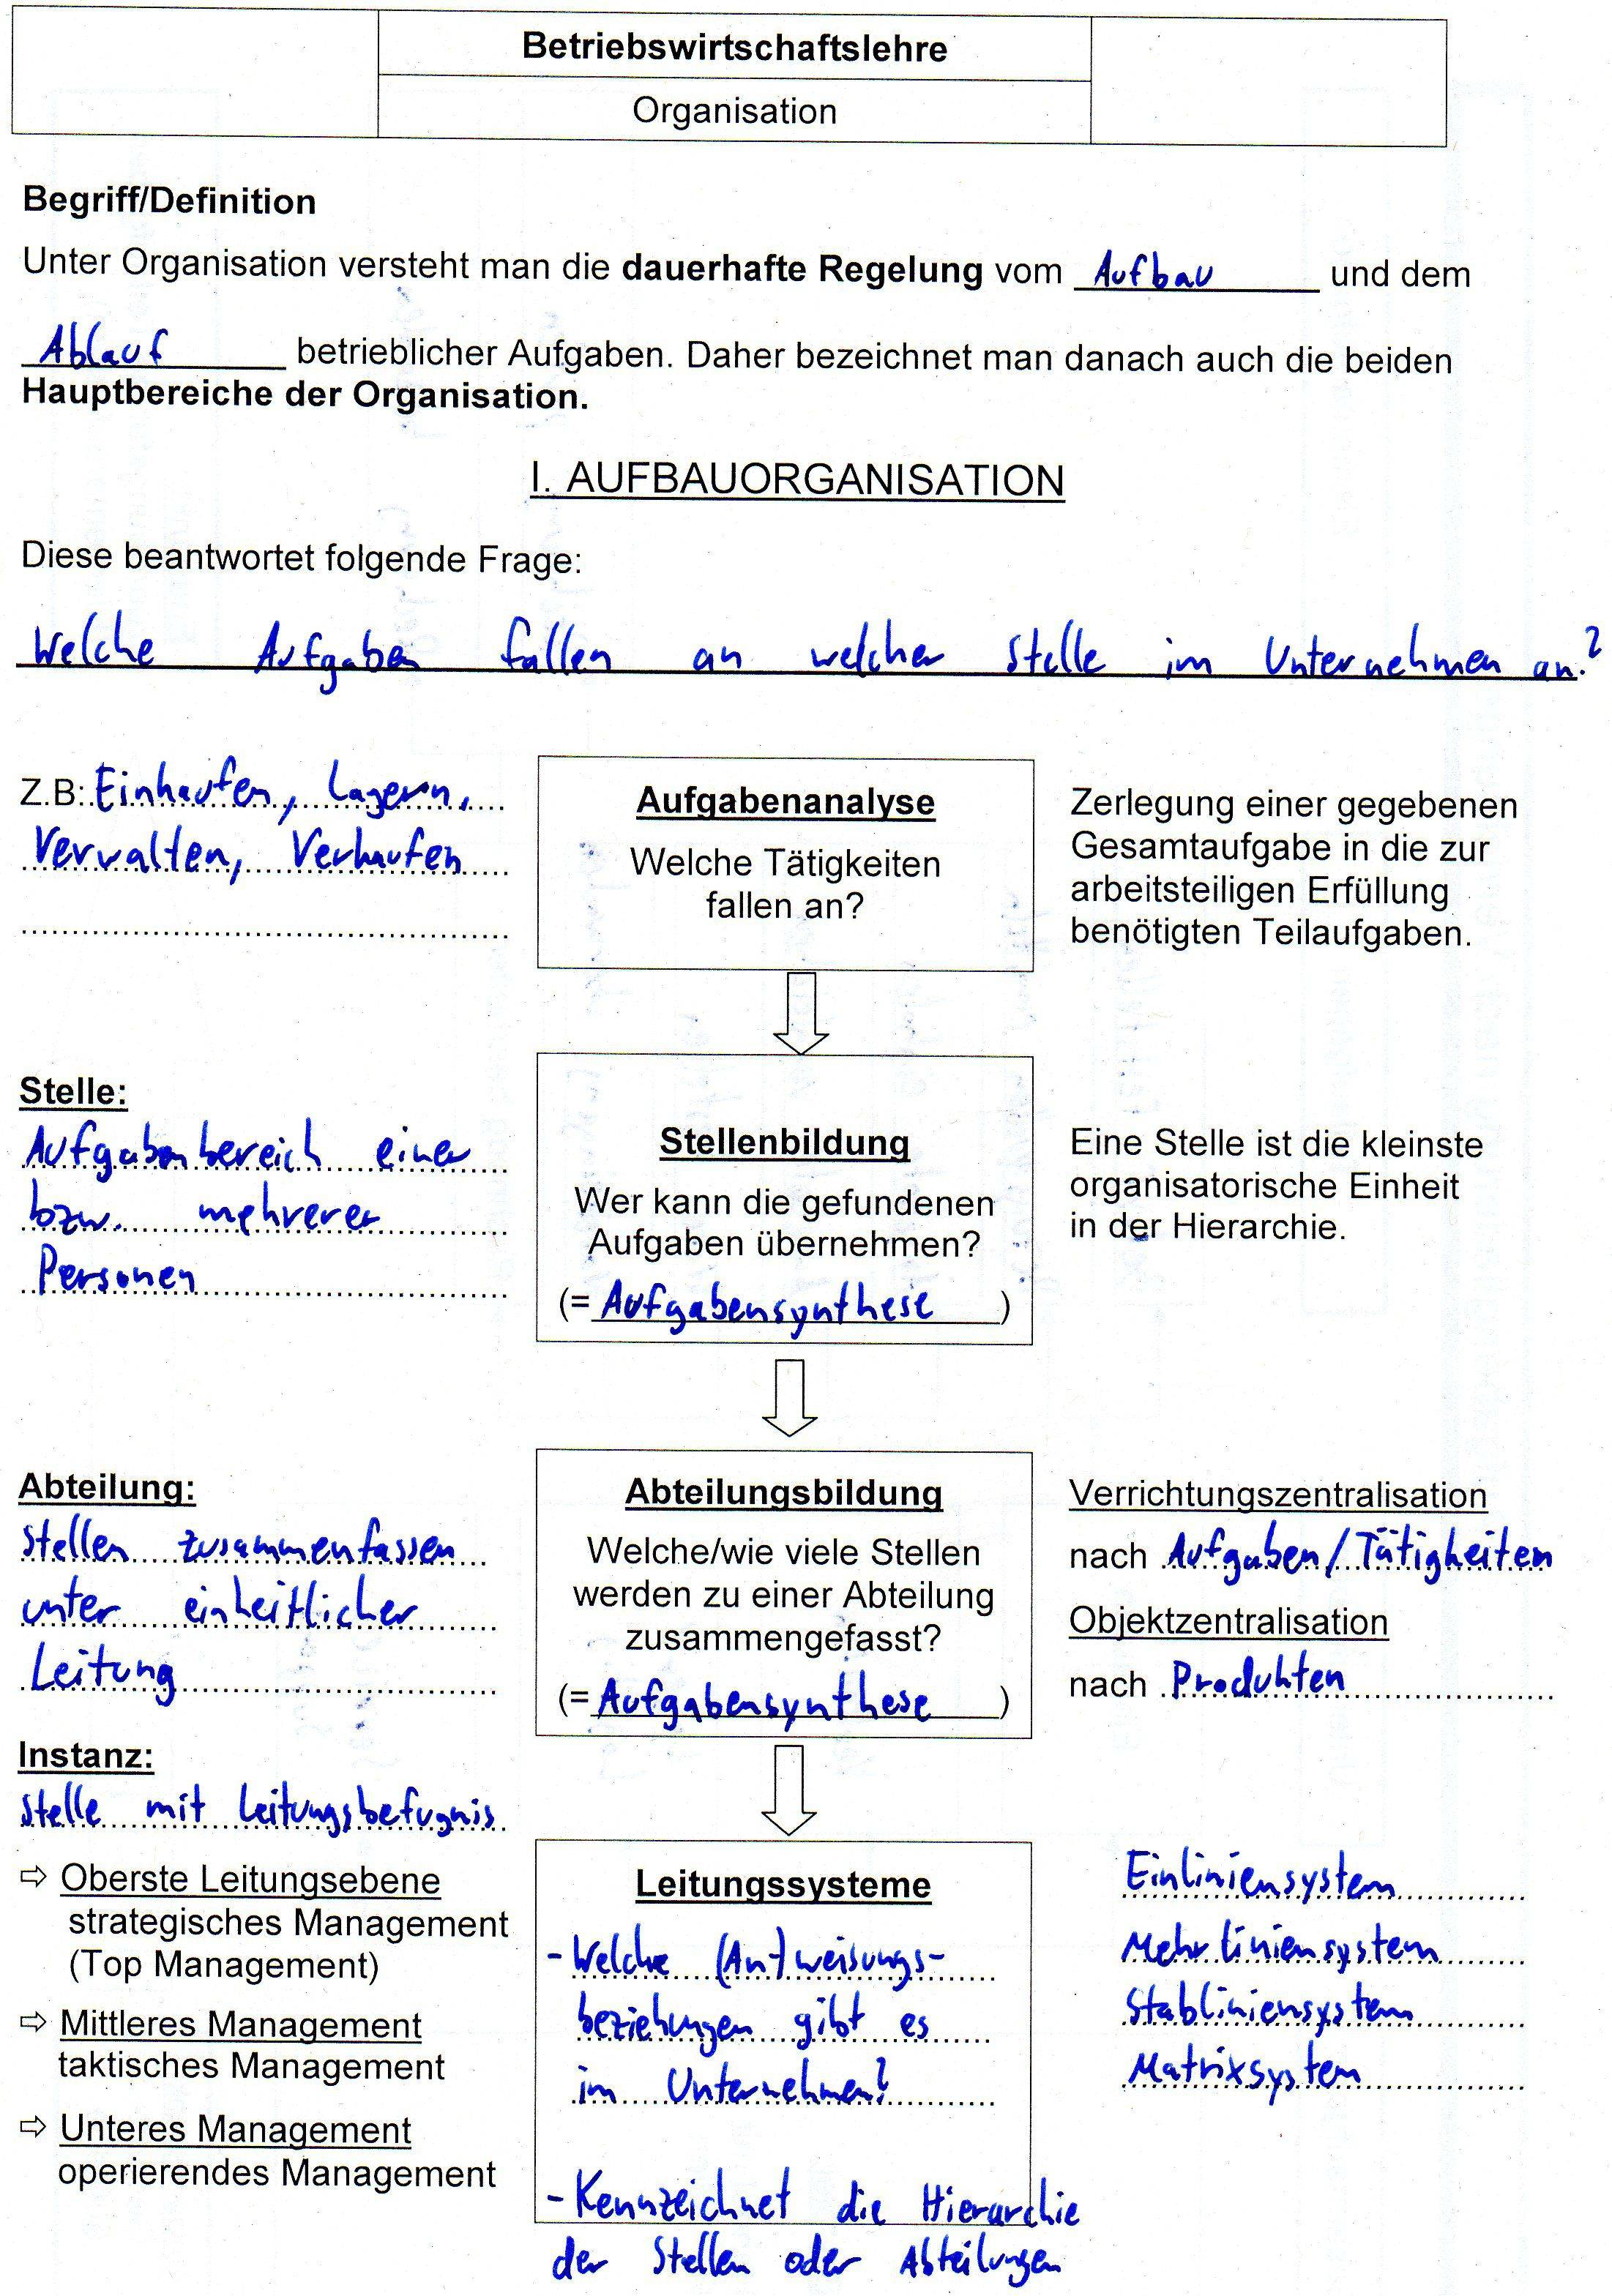 Betriebswirtschaftslehre
Organisation
Begriff/Definition
Unter Organisation versteht man die dauerhafte Regelung vom Aufbau und dem
Ablauf betrieblicher Aufgaben. Daher bezeichnet man danach auch die beiden
Hauptbereiche der Organisation.
I. AUFBAUORGANISATION
Diese beantwortet folgende Frage:
Welche Aufgaben fallen an welcher Stelle im Unternehmen an?
Z.B: Einkaufen, Lagern,
Verwalten, Verkaufen
Aufgabenanalyse
Welche Tätigkeiten
fallen an?
Zerlegung einer gegebenen
Gesamtaufgabe in die zur
arbeitsteiligen Erfüllung
benötigten Teilaufgaben.
Stelle:
Aufgabenbereich einer
bzw. mehrerer
Personen
Stellenbildung
Wer kann die gefundenen
Aufgaben übernehmen?
(= Aufgabensynthese )
Eine Stelle ist die kleinste
organisatorische Einheit
in der Hierarchie.
Abteilung:
Stellen zusammenfassen
unter einheitlicher
Leitung
Abteilungsbildung
Welche/wie viele Stellen
werden zu einer Abteilung
zusammengefasst?
(= Aufgabensynthese )
Verrichtungszentralisation
nach Aufgaben/Tätigkeiten
Objektzentralisation
nach Produkten
Instanz:
Stelle mit Leitungsbefugnis
⇨ Oberste Leitungsebene
strategisches Management
(Top Management)
⇨ Mittleres Management
taktisches Management
⇨ Unteres Management
operierendes Management
Leitungssysteme
- Welche (An)weisungs-
beziehungen gibt es
im Unternehmen?
- Kennzeichnet die Hierarchie
der Stellen oder Abteilungen
Einliniensystem
Mehrliniensystem
Stabliniensystem
Matrixsystem